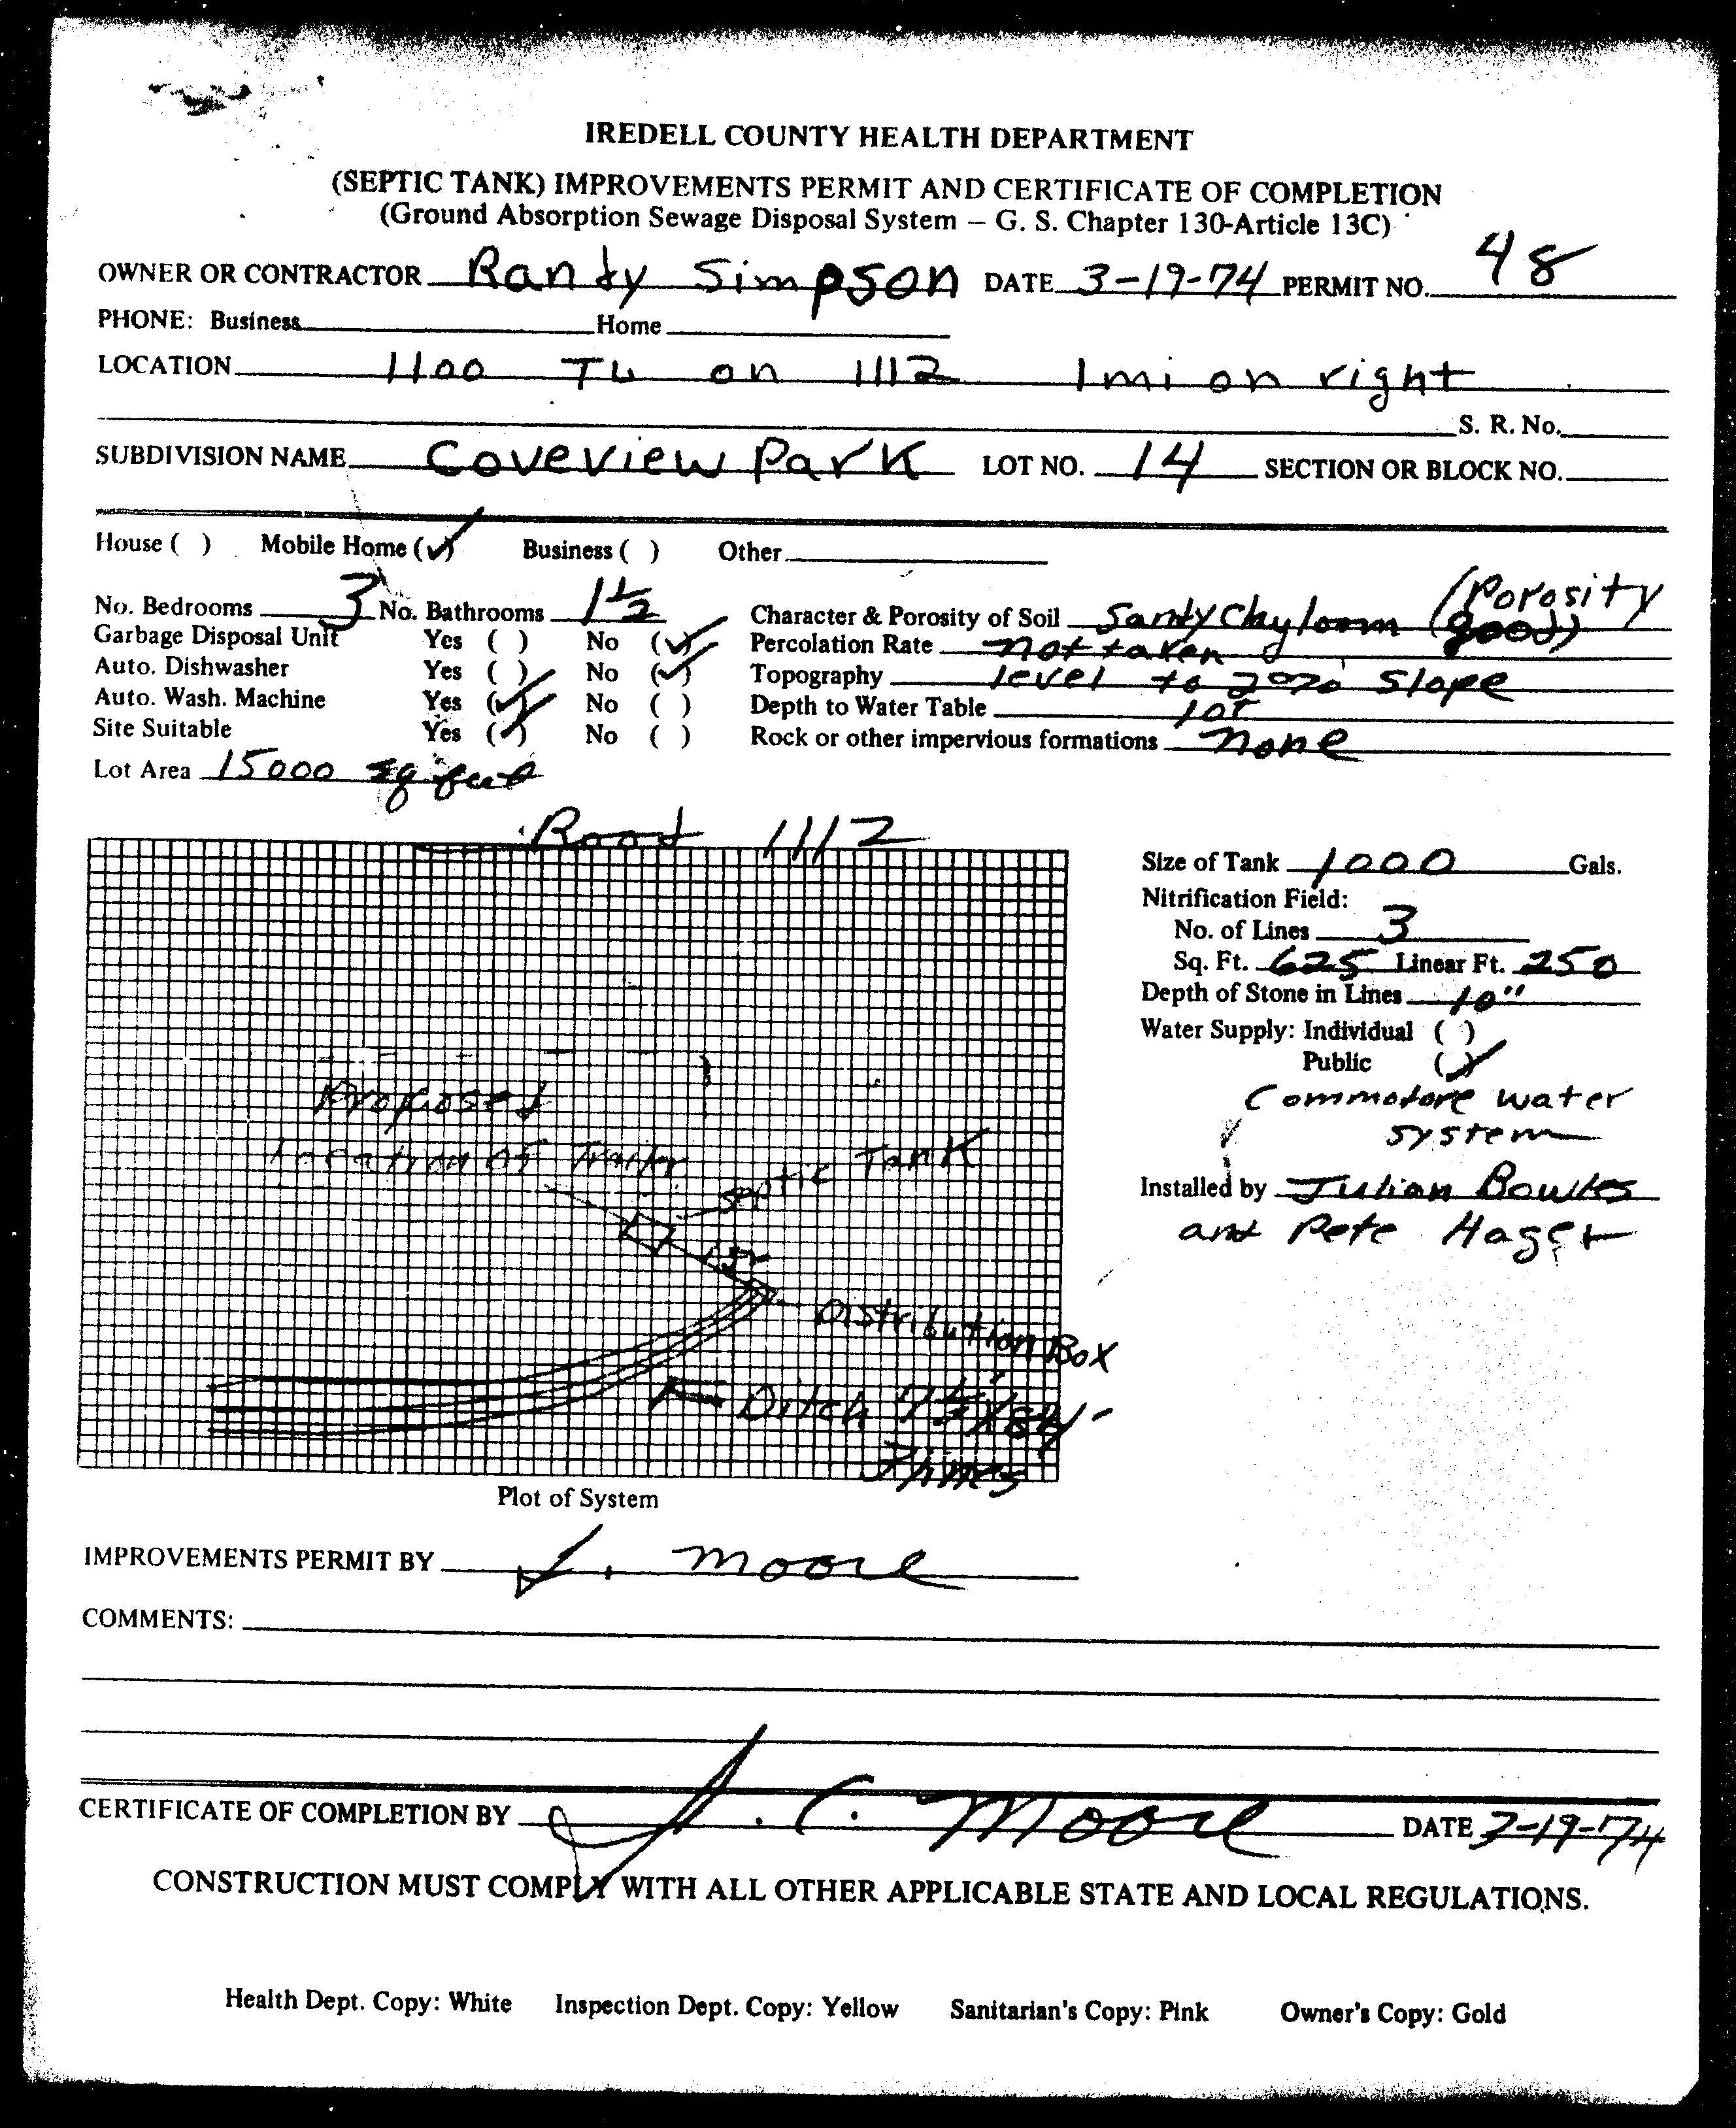 IREDELL COUNTY HEALTH DEPARTMENT
(SEPTIC TANK) IMPROVEMENTS PERMIT AND CERTIFICATE OF COMPLETION
(Ground Absorption Sewage Disposal System – G. S. Chapter 130-Article 13C)
OWNER OR CONTRACTOR Randy Simpson DATE 3-19-74 PERMIT NO. 48
PHONE: Business Home
LOCATION 1100 TL on 1112 1 mi on right
S. R. No.
SUBDIVISION NAME Coveview Park LOT NO. 14 SECTION OR BLOCK NO.
House ( ) Mobile Home (✓) Business ( ) Other
No. Bedrooms 3 No. Bathrooms 1½ Character & Porosity of Soil Sandy Clay loam (Porosity good)
Garbage Disposal Unit Yes ( ) No (✓) Percolation Rate not taken
Auto. Dishwasher Yes ( ) No (✓) Topography level to 2% Slope
Auto. Wash. Machine Yes (✓) No ( ) Depth to Water Table
Site Suitable Yes (✓) No ( ) Rock or other impervious formations none
Lot Area 15000 sq feet
Road 1112
Size of Tank 1000 Gals.
Nitrification Field:
No. of Lines 3
Sq. Ft. 625 Linear Ft. 250
Depth of Stone in Lines 10"
Water Supply: Individual ( )
Public (✓)
Commodore water
system
Installed by Julian Bowles
and Pete Hager
Proposed
Location of Trailer
Septic Tank
Distribution Box
Ditch
3 lines
Plot of System
IMPROVEMENTS PERMIT BY J. Moore
COMMENTS:
CERTIFICATE OF COMPLETION BY J. C. Moore DATE 3-19-74
CONSTRUCTION MUST COMPLY WITH ALL OTHER APPLICABLE STATE AND LOCAL REGULATIONS.
Health Dept. Copy: White Inspection Dept. Copy: Yellow Sanitarian's Copy: Pink Owner's Copy: Gold